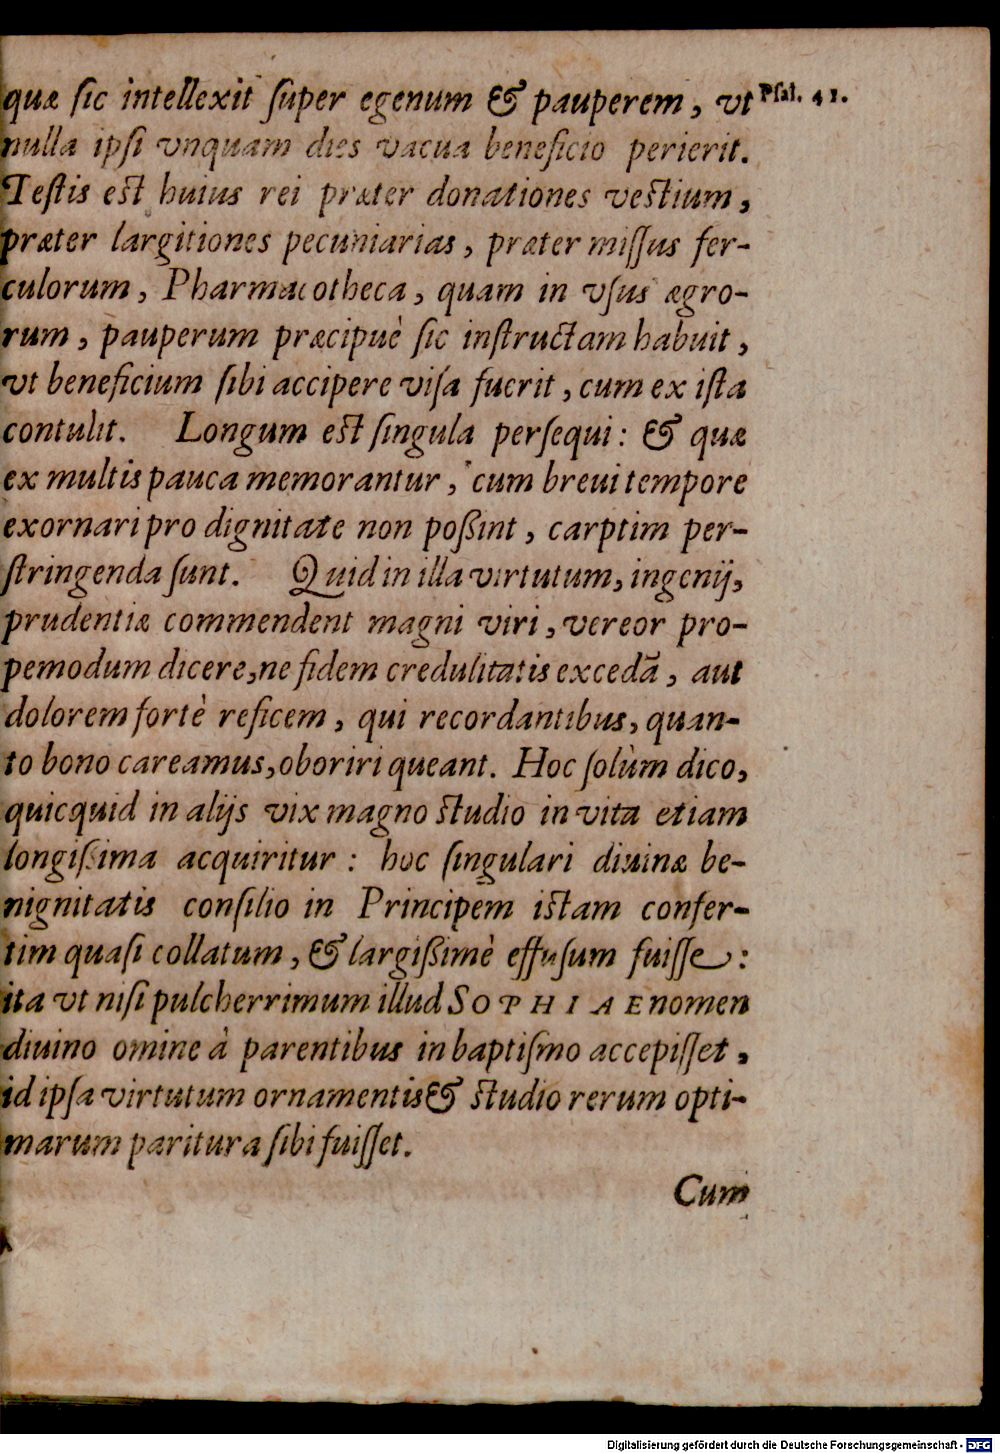 quæ ſic intellexit ſuper egenum & pauperem, vt Pſal. 41.
nulla ipſi vnquam dies vacua beneficio perierit.
Teſtis eſt huius rei præter donationes veſtium,
præter largitiones pecuniarias, præter miſſus fer-
culorum, Pharmacotheca, quam in vſus ægro-
rum, pauperum præcipuè ſic inſtructam habuit,
vt beneficium ſibi accipere viſa fuerit, cum ex iſta
contulit. Longum eſt ſingula perſequi: & quæ
ex multis pauca memorantur, cum breui tempore
exornari pro dignitate non poßint, carptim per-
ſtringenda ſunt. Quid in illa virtutum, ingenij,
prudentiæ commendent magni viri, vereor pro-
pemodum dicere, ne fidem credulitatis excedā, aut
dolorem fortè reficem, qui recordantibus, quan-
to bono careamus, oboriri queant. Hoc ſolùm dico,
quicquid in alijs vix magno ſtudio in vita etiam
longißima acquiritur: hoc ſingulari diuinæ be-
nignitatis conſilio in Principem iſtam confer-
tim quaſi collatum, & largißimè effuſum fuiſſe:
ita vt niſi pulcherrimum illud SOPHIAE nomen
diuino omine à parentibus in baptiſmo accepiſſet,
id ipſa virtutum ornamentis & ſtudio rerum opti-
marum paritura ſibi fuiſſet.
Cum
Digitalisierung gefördert durch die Deutsche Forschungsgemeinschaft - DFG